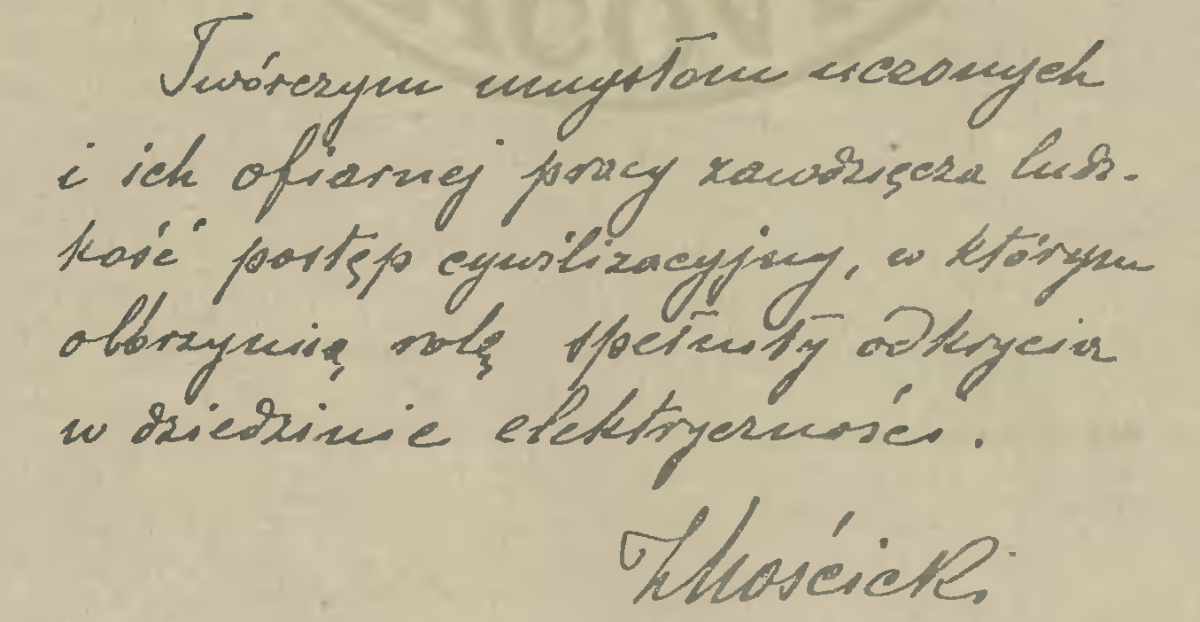 Twórczym umysłom uczonych
i ich ofiarnej pracy zawdzięcza ludz-
kość postęp cywilizacyjny, w którym
olbrzymią rolę spełniły odkrycia
w dziedzinie elektryczności.
I Mościcki